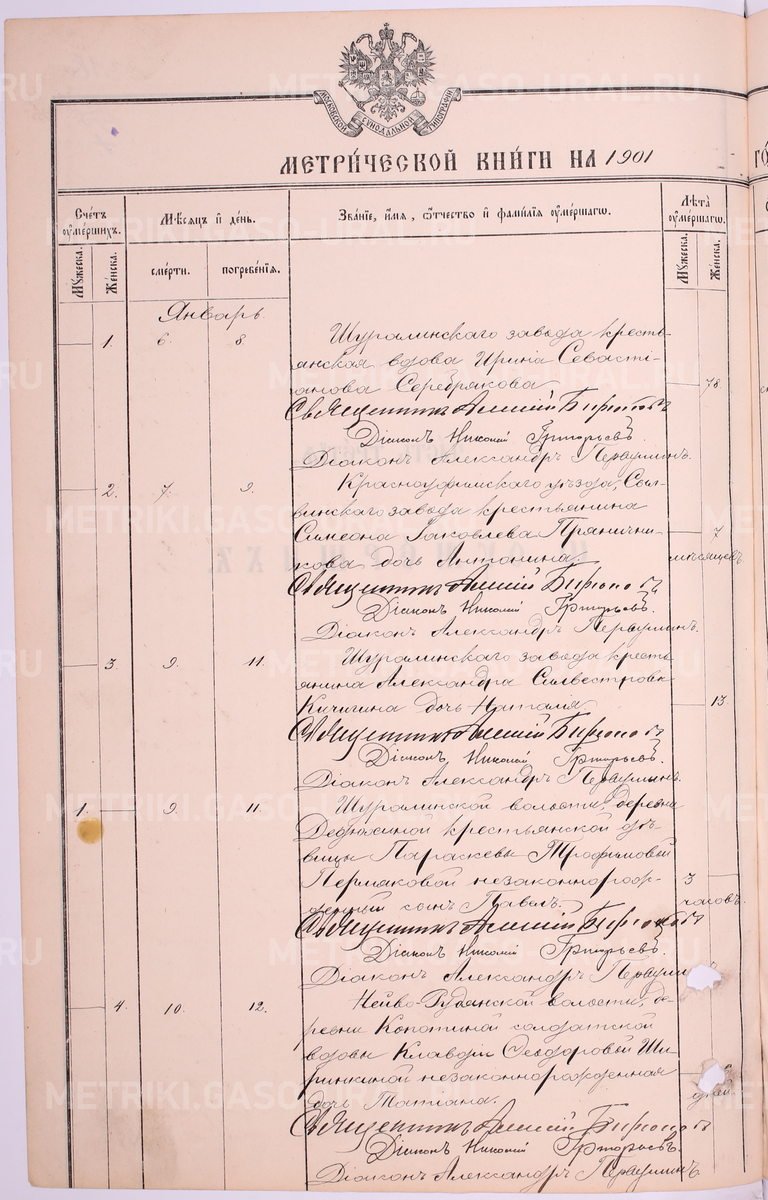 МОСКОВСКОЙ СѴНОДАЛЬНОЙ ТИПОГРАФІИ
МЕТРИ́ЧЕСКОЙ КНИ́ГИ НА 1901
Сче́тъ оу҆ме́ршихъ.
Мѣ́сяцъ и҆ де́нь.
Зва́нїе, и҆́мя, ѻ҆́тчество и҆ фами́лїя оу҆ме́ршагѡ.
Лѣта̀ оу҆ме́ршагѡ.
Му́жеска.
Же́нска.
сме́рти.
погребе́нїя.
Му́жеска.
Же́нска.
Январь.
1. 6. 8. Шуралинскаго завода кресть-
янская вдова Ирина Севасті-
анова Серебрякова 78.
Священникъ Алексій Бирюковъ
Діаконъ Николай Григорьевъ.
Діаконъ Александръ Первушинъ.
2. 7. 9. Красноуфимскаго уѣзда, Сыл-
винскаго завода крестьянина
Симеона Іаковлева Прянични- 7
кова дочь Антонина мѣсяцевъ
Священникъ Алексій Бирюковъ
Діаконъ Николай Григорьевъ.
Діаконъ Александръ Первушинъ.
3. 9. 11. Шуралинскаго завода кресть-
янина Александра Сильвестрова
Кичигина дочь Наталія 13
Священникъ Алексій Бирюковъ
Діаконъ Николай Григорьевъ.
Діаконъ Александръ Первушинъ.
1. 9. 11. Шуралинской волости, деревни
Дедюхиной крестьянской дѣ-
вицы Параскевы Трофимовой
Пермяковой незаконнорож- 3
денный сынъ Павелъ. часовъ.
Священникъ Алексій Бирюковъ
Діаконъ Николай Григорьевъ.
Діаконъ Александръ Первушинъ
4. 10. 12. Нейво-Рудянской волости, де-
ревни Копотиной солдатской
вдовы Клавдіи Ѳеодоровой Ши-
ринкиной незаконнорожденная
дочь Татіана. дней.
Священникъ Алексій Бирюковъ
Діаконъ Николай Григорьевъ.
Діаконъ Александръ Первушинъ
METRIKI.GASO-URAL.RU